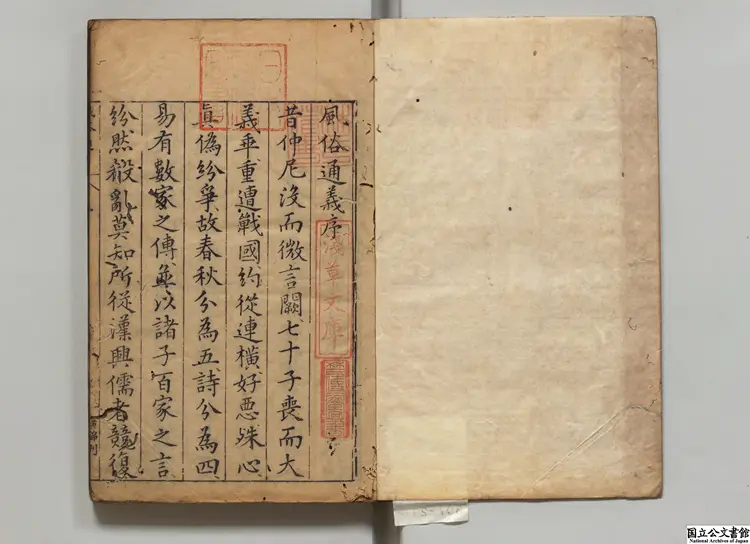 風俗通義序
昔仲尼没而微言闕七十子喪而大
義乖重遭戰國約從連橫好惡殊心
眞僞紛爭故春秋分為五詩分為四
易有數家之傳並以諸子百家之言
紛然殽亂莫知所從漢興儒者競復
文庫
国立公文書館
National Archives of Japan